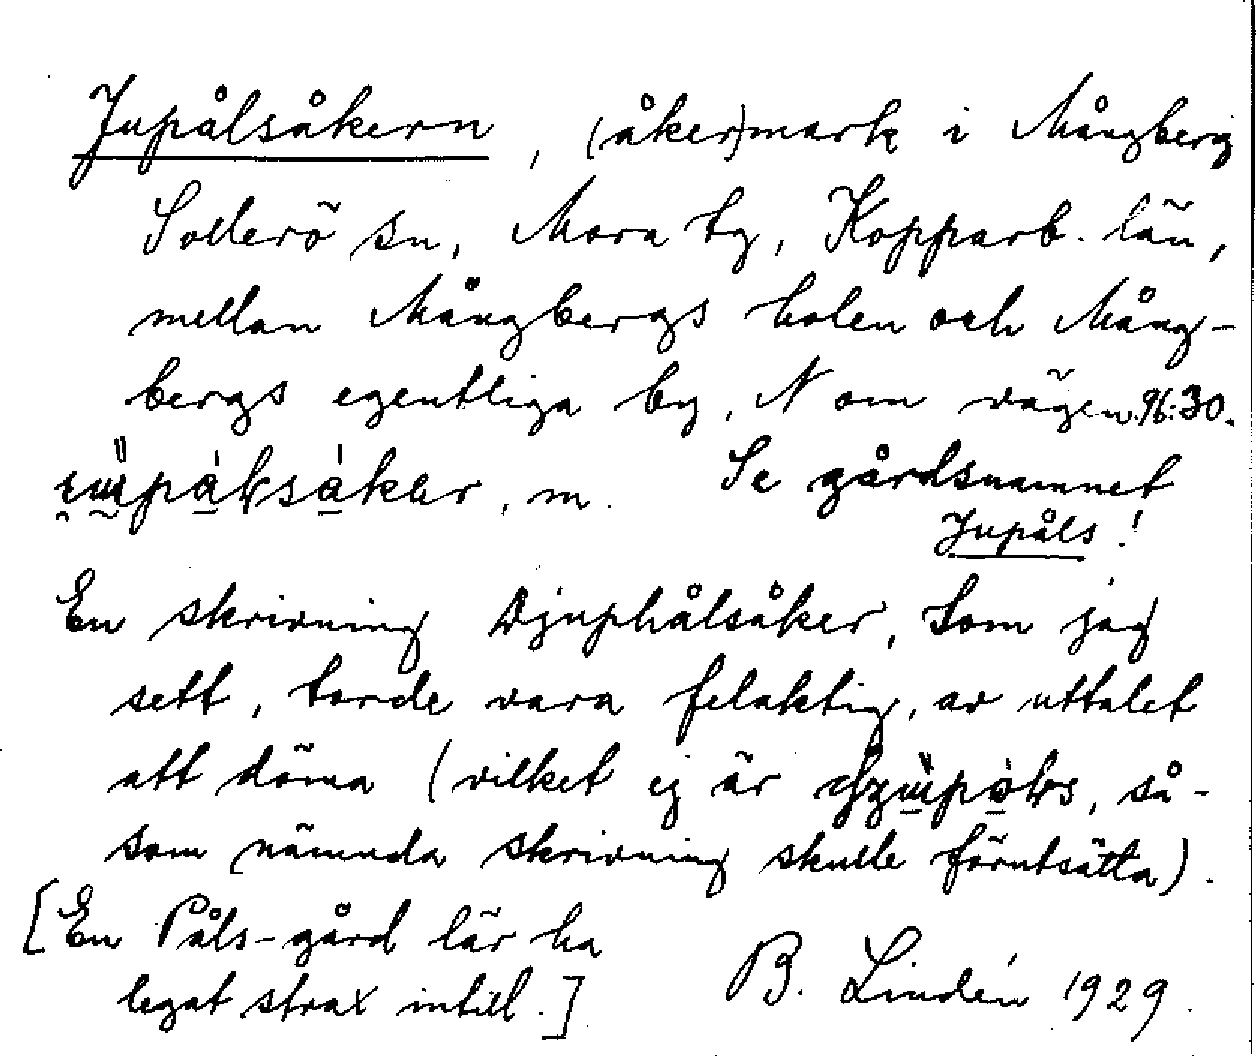 Jupålsåkern, (åker)mark i Mångberg
Sollerö sn, Mora tg, Kopparb. län,
mellan Mångbergs holen och Mång-
bergs egentliga by, N om vägen. 96:30.
, m. Se gårdsnamnet
Jupåls!
En skrivning Djuphålsåker, som jag
sett, torde vara felaktig, av uttalet
att döma (vilket ej är , så-
som nämnda skrivning skulle förutsätta).
[En Påls-gård lär ha
legat strax intill.] B. Lindén 1929.